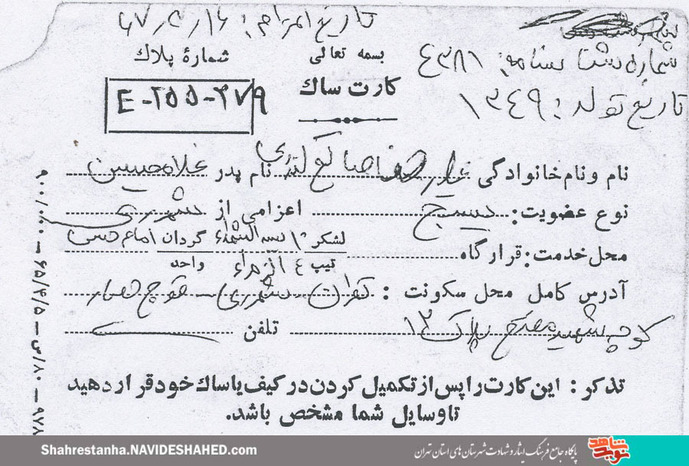 تاریخ اعزام: ۶۷/۵/۱۶
بسمه تعالی
شماره پلاک
شماره شناسنامه: ۴۳۸۱
کارت ساک
E-۲۵۵-۳۷۹
تاریخ تولد: ۱۳۴۹
نام و نام خانوادگی علیرضا صالح نام پدر غلامحسین
نوع عضویت: بسیج اعزامی از شهرری
محل خدمت: قرارگاه لشکر ۱۰ سیدالشهداء گردان امام حسن
تیپ ٤ الزهراء واحد
آدرس کامل محل سکونت: تهران - شهرری - قوچ حصار
کوچه شهید مفتح پلاک ۱۲ تلفن
تذکر: این کارت را پس از تکمیل کردن در کیف یا ساک خود قرار دهید
تا وسایل شما مشخص باشد.
۹۰۰/۰۰۰ – ۶۵/۴/۵ – س/۸۰ – ۹۷۸
Shahrestanha.NAVIDESHAHED.com
پایگاه جامع فرهنگ ایثار و شهادت شهرستان های استان تهران
نوید شاهد